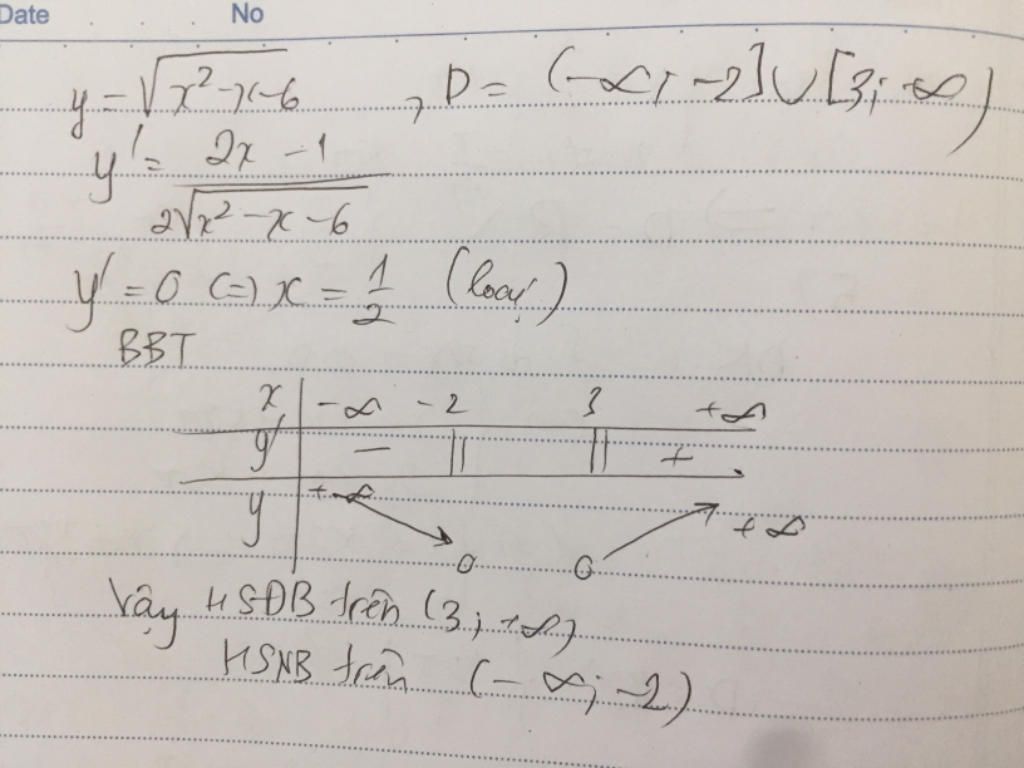 Date No
y = √(x² - x - 6) , D = (-∞; -2] ∪ [3; +∞)
y' = (2x - 1) / (2√(x² - x - 6))
y' = 0 (=) x = 1/2 (loại)
BBT
x -∞ -2 3 +∞
y' - || || +
y +∞ ↘ 0 0 ↗ +∞
Vậy HSĐB trên (3; +∞)
HSNB trên (-∞; -2)